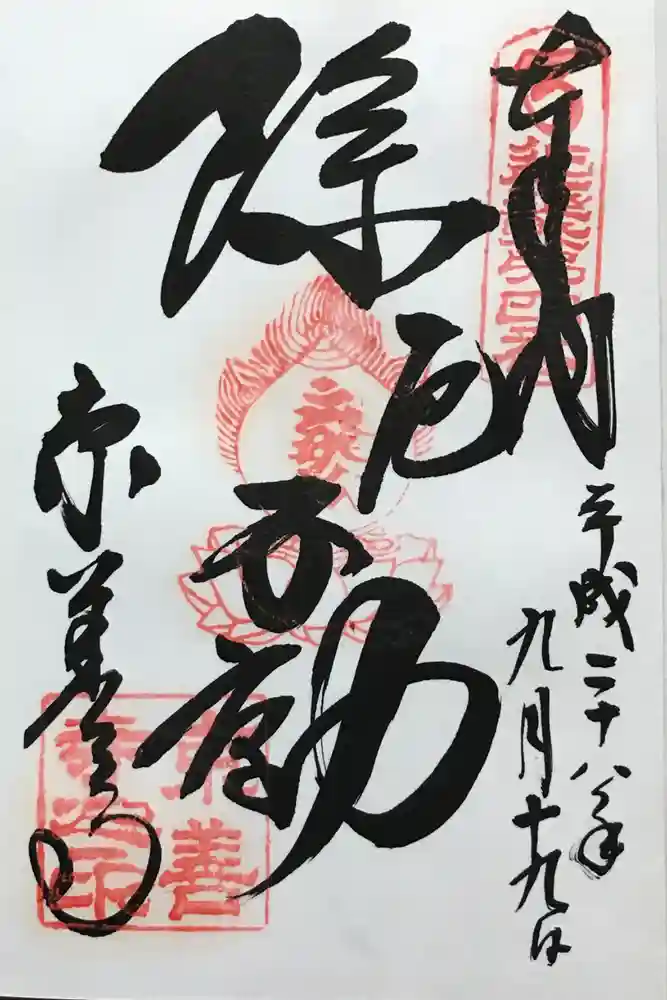 奉拝
平成二十八年
九月十九日
除厄不動
京善寺
京善
寺之印